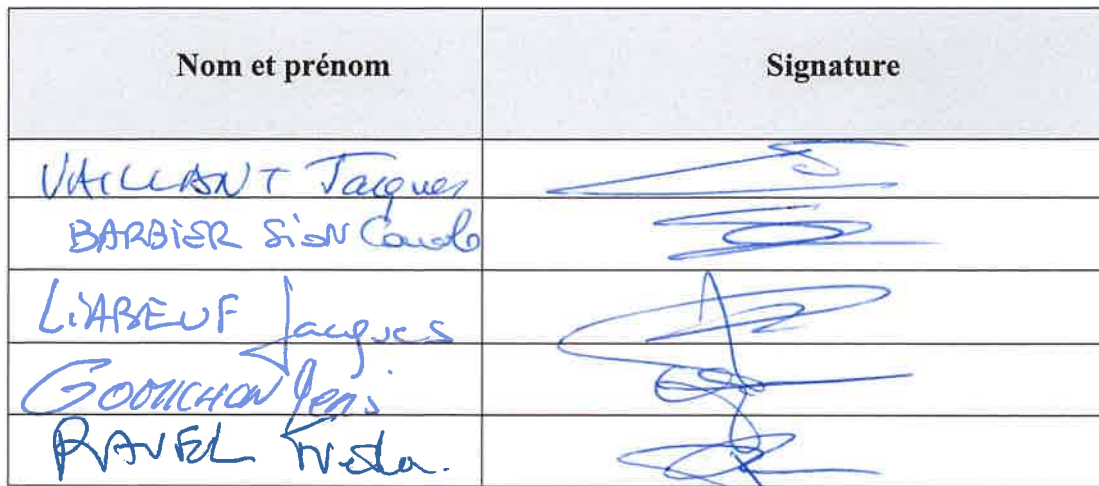 Nom et prénom Signature
VAILLANT Jacques
BARBIER SiON Carole
LiABEUF Jacques
RAVEL